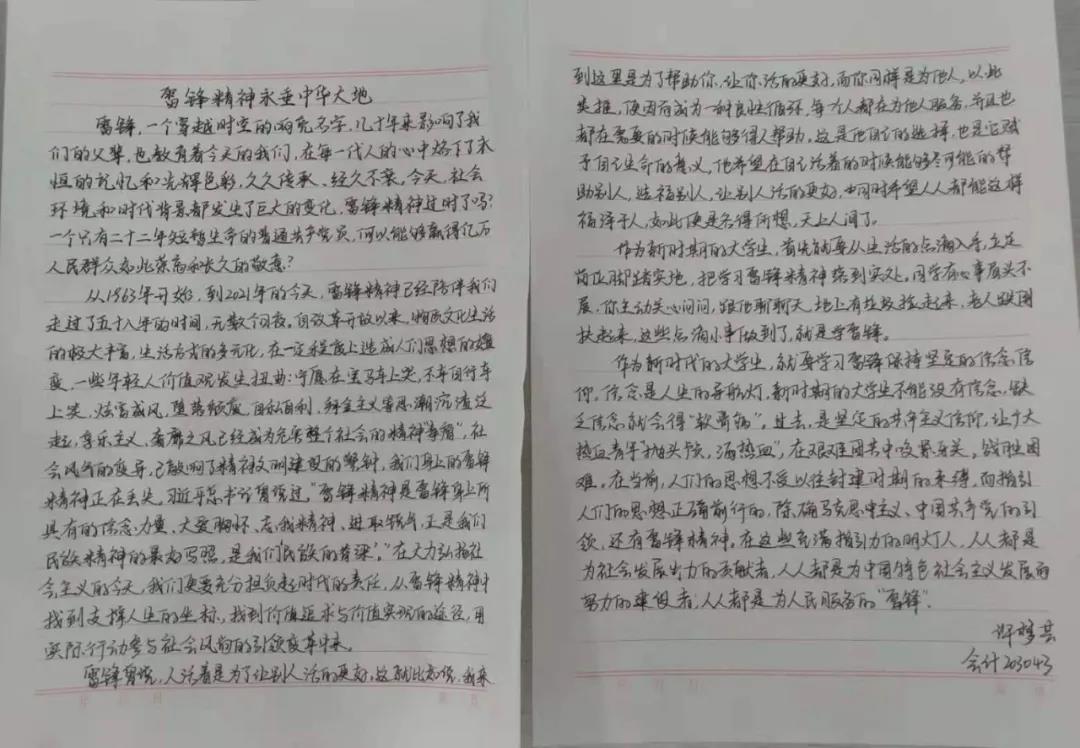 雷锋精神永垂中华大地
雷锋，一个穿越时空的响亮名字，几十年来影响了我
们的父辈，也教育着今天的我们，在每一代人的心中烙下了永
恒的记忆和光辉色彩，久久传承、经久不衰。今天，社会
环境和时代背景都发生了巨大的变化，雷锋精神过时了吗？
一个只有二十二年短暂生命的普通共产党员，何以能够赢得亿万
人民群众如此崇高和长久的敬意？
从1963年开始，到2021年的今天，雷锋精神已经陪伴我们
走过了五十八年的时间，无数个日夜。自改革开放以来，物质文化生活
的极大丰富，生活方式的多元化，在一定程度上造成人们思想的嬗
变，一些年轻人价值观发生扭曲：宁愿在宝马车上哭，不在自行车
上笑，炫富成风，堕落颓废，自私自利，拜金主义等思潮沉渣泛
起，享乐主义、奢靡之风已经成为危害整个社会的精神"毒瘤"，社
会风气的变异，已敲响了精神文明建设的警钟，我们身上的雷锋
精神正在丢失。习近平总书记曾说过，"雷锋精神是雷锋身上所
具有的信念力量、大爱胸怀、忘我精神、进取锐气，正是我们
民族精神的最好写照，是我们'民族的脊梁'。"在大力弘扬社
会主义的今天，我们更要充分担负起时代的责任，从雷锋精神中
找到支撑人生的坐标，找到价值追求与价值实现的途径，用
实际行动参与社会风尚的引领变革中来。
雷锋曾说，人活着是为了让别人活的更好，这就比如说，我来
到这里是为了帮助你，让你活的更好，而你同样是为他人，以此
类推，便因而成为一种良性循环，每个人都在为他人服务，并且也
都在需要的时候能够得人帮助。这是他自己的选择，也是它赋
予自己生命的意义，他希望在自己活着的时候能够尽可能的帮
助别人，造福别人，让别人活的更好，也同时希望人人都能这样
福泽于人，如此便是各得所想，天上人间了。
作为新时期的大学生，首先就要从生活的点滴入手，立足
岗位脚踏实地，把学习雷锋精神落到实处。同学有心事眉头不
展，你主动关心问问，跟他聊聊天，地上有垃圾捡起来，老人跌倒
扶起来，这些点滴小事做到了，就是学雷锋。
作为新时代的大学生，就要学习雷锋保持坚定的信念信
仰。信念是人生的导航灯，新时期的大学生不能没有信念，缺
乏信念就会得"软骨病"。过去，是坚定的共产主义信仰，让广大
热血青年"抛头颅，洒热血"，在艰难困苦中咬紧牙关，战胜困
难。在当前，人们的思想不受以往封建时期的束缚，而指引
人们的思想正确前行的，除确马克思主义、中国共产党的引
领，还有雷锋精神。在这些充满指引力的明灯人，人人都是
为社会发展出力的贡献者，人人都是为中国特色社会主义发展而
努力的建设者，人人都是为人民服务的"雷锋"。
许梦芸
会计203043